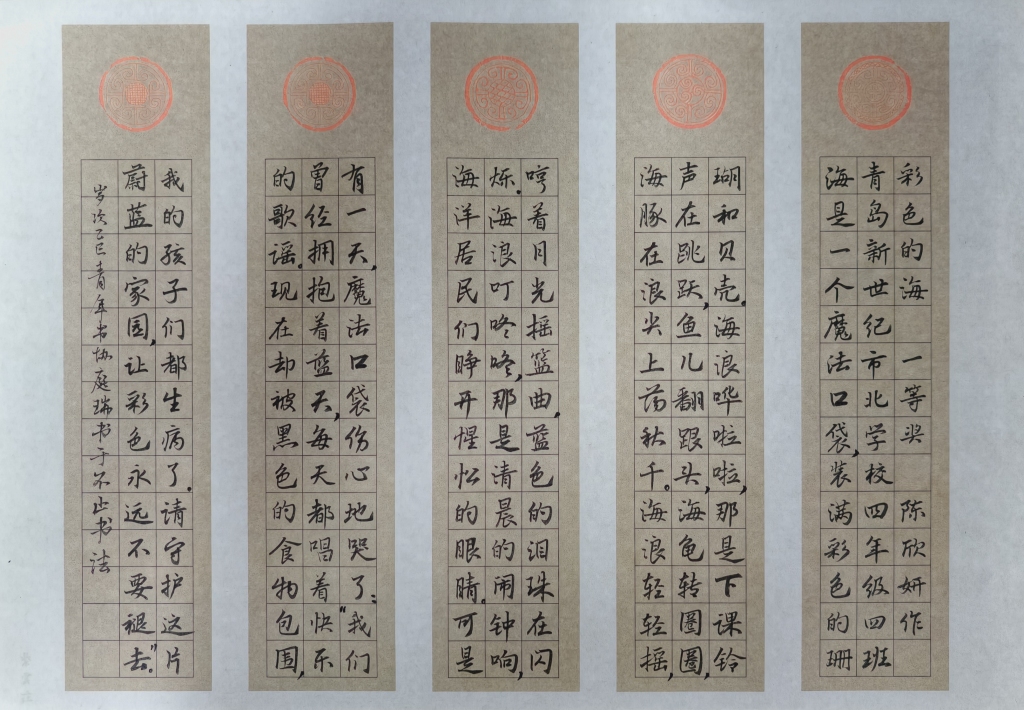 彩色的海 一等奖 陈欣妍作
青岛新世纪市北学校四年级四班
海是一个魔法口袋，装满彩色的珊
瑚和贝壳。海浪哗啦啦，那是下课铃
声在跳跃，鱼儿翻跟头，海龟转圈圈，
海豚在浪尖上荡秋千。海浪轻轻摇，
哼着月光摇篮曲，蓝色的泪珠在闪
烁。海浪叮咚咚，那是清晨的闹钟响，
海洋居民们睁开惺忪的眼睛。可是
有一天，魔法口袋伤心地哭了：“我们
曾经拥抱着蓝天，每天都唱着快乐
的歌谣。现在却被黑色的食物包围，
我的孩子们都生病了。请守护这片
蔚蓝的家园，让彩色永远不要褪去。”
岁次乙巳青年书协庭瑞书于不止书法